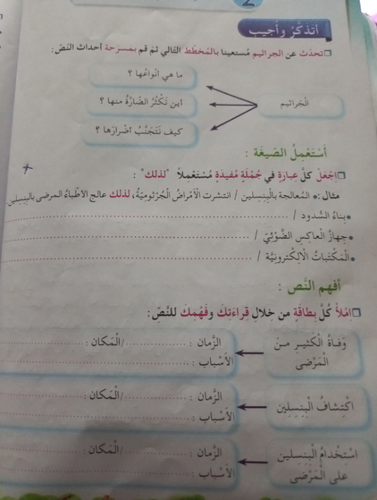 أتذكّر وأجيب
تحدّث عن الجراثيم مستعينا بالمخطّط التالي ثمّ قم بمسرحة أحداث النصّ:
ما هي أنواعها ؟
الجراثيم
أين تكثُرُ الضّارّةُ منها ؟
كيف نتجنّبُ أضرارها ؟
أستعملُ الصّيغة :
اِجعل كلّ عبارة في جُملة مُفيدة مُستعملاً "لذلك" :
مثال :• المعالجة بالبنسلين / انتشرت الأمراضُ الجُرثوميّةُ، لذلك عالج الأطباءُ المرضى بالبنسلين
•بناءُ السّدود /
•جهازُ العاكس الضّوئيّ /
•المكتباتُ الألكترونيّة /
أفهم النّص :
اِملأ كُلّ بطاقة من خلال قراءتك وفهمك للنّصّ:
وفاةُ الكثير من المرضى
الزّمان : /المكان :
الأسباب :
اكتشافُ البنسلين
الزّمان : /المكان :
الأسباب :
استخدامُ البنسلين على المرضى
الزّمان : /المكان :
الأسباب :